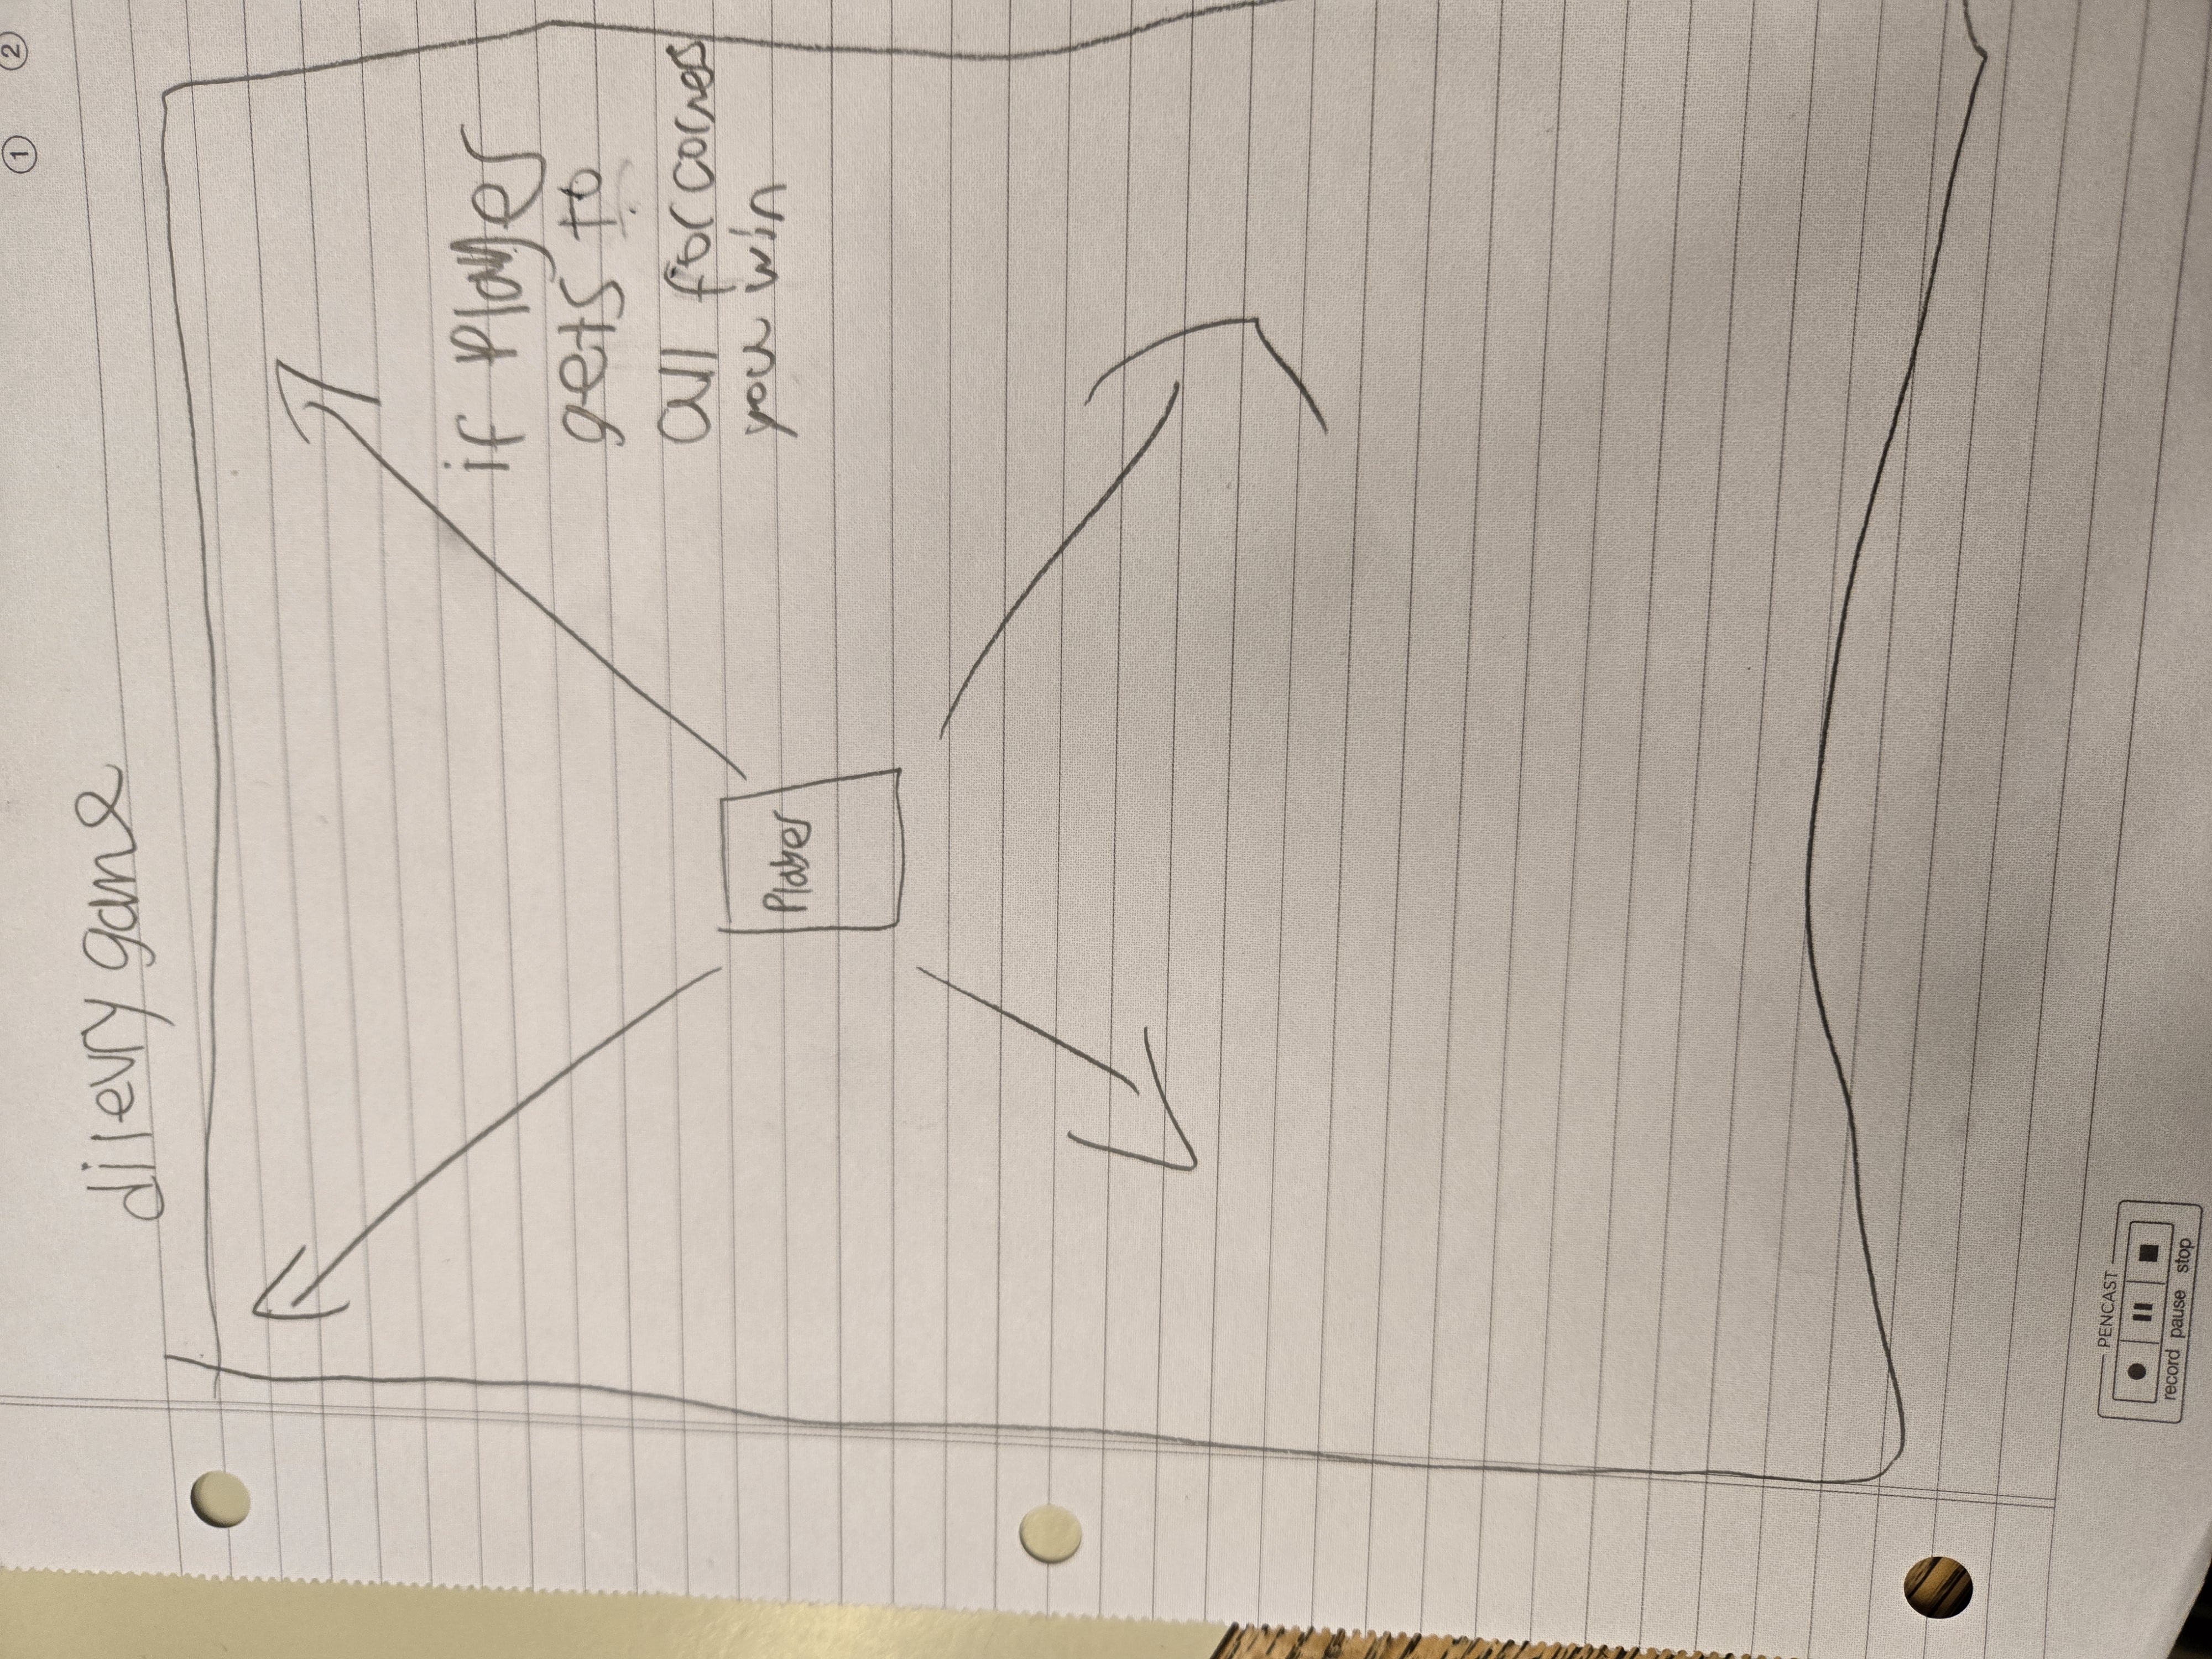 ① ②
dilevry game
if Player
gets to
all for corners
you win
Player
PENCAST
record pause stop